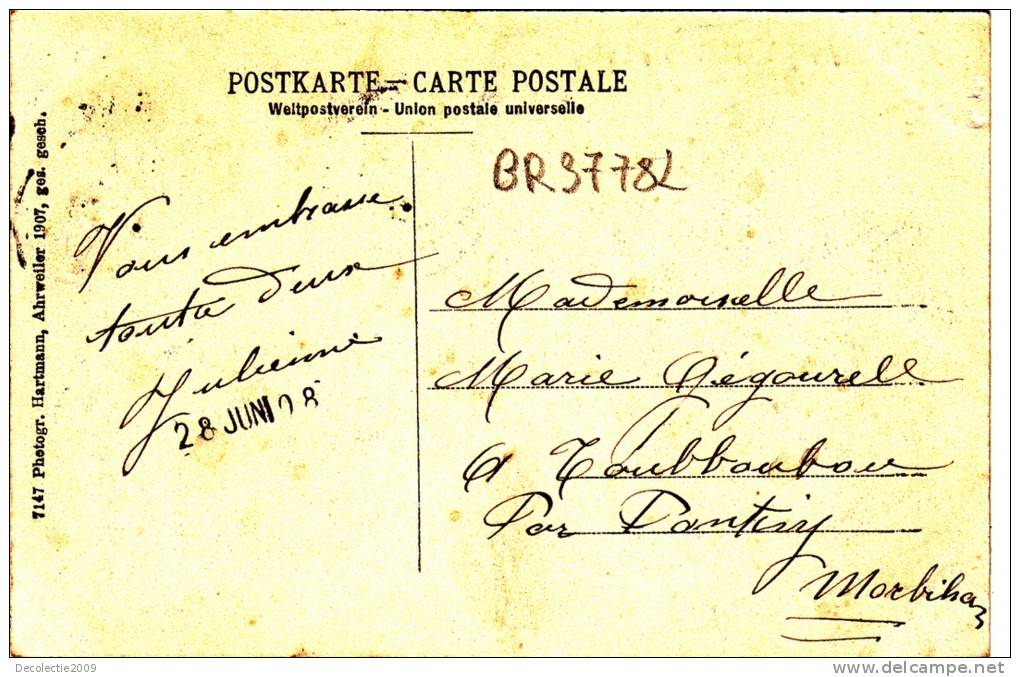 POSTKARTE – CARTE POSTALE
Weltpostverein - Union postale universelle
BR37782
7147 Photogr. Hartmann, Ahrweiler 1907, ges. gesch.
Vous embrasse
toute deux
Julienne
28 JUNI 08
Mademoiselle
Marie Gégourell
a Toubboubou
Par Pontivy
Morbihan
Decolectie2009
www.delcampe.net